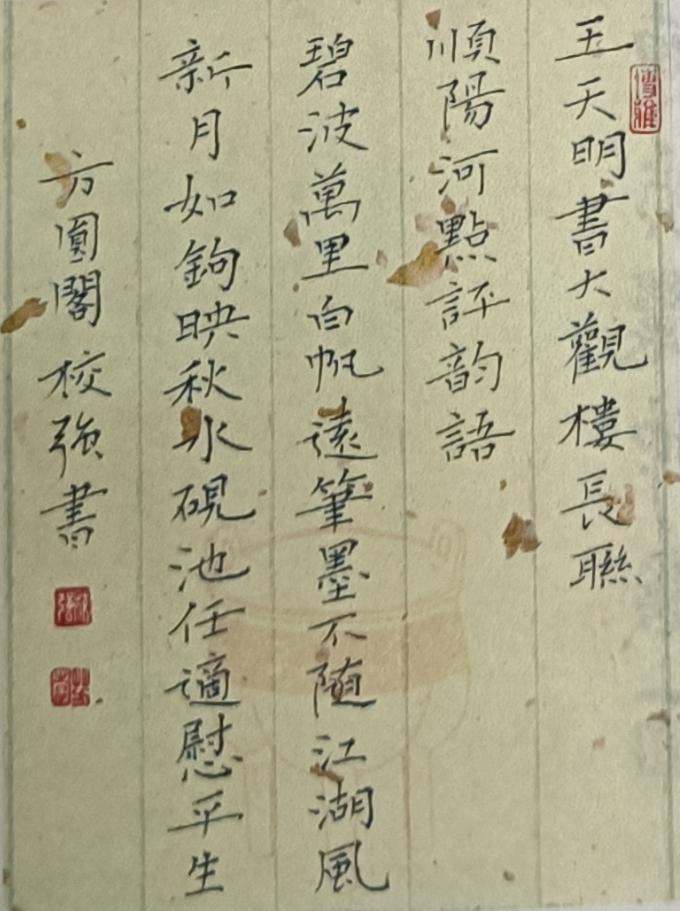 王天明書大觀樓長聯
順陽河點評韵語
碧波萬里白帆遠筆墨不隨江湖風
新月如鉤映秋水硯池任適慰平生
方圓閣校強書